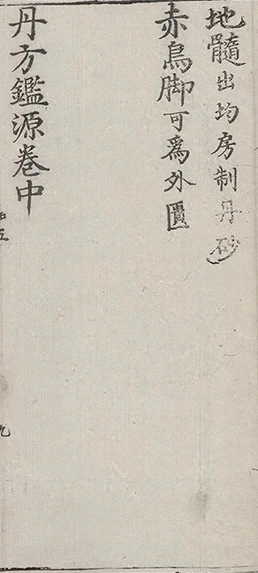 地髓出均房制丹砂
赤鳥脚可爲外匱
丹方鑑源卷中
五
九